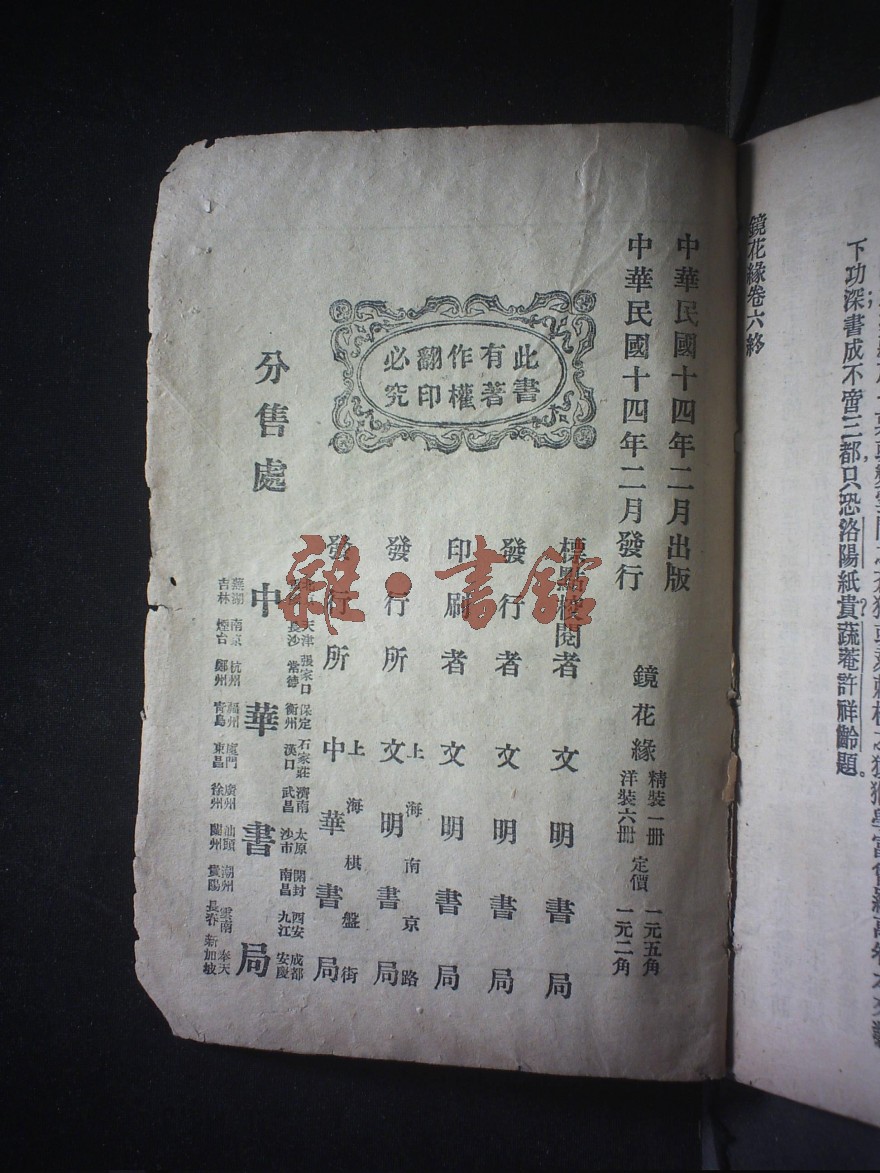 下功深書成不啻三都只恐洛陽紙貴蔬菴許祥齡題。
鏡花緣卷六終
中華民國十四年二月出版
中華民國十四年二月發行
鏡花緣 精裝一册 定價 一元五角
洋裝六册 一元二角
標點校閱者 文明書局
發行者 文明書局
印刷者 文明書局
發行所 上海南京路 文明書局
發行所 上海棋盤街 中華書局
此書
有著
作權
翻印
必究
分售處 中華書局
天津 張家口 保定 石家莊 濟南 太原 開封 西安 成都
長沙 常德 衡州 漢口 武昌 沙市 南昌 九江 安慶
蕪湖 南京 杭州 福州 廈門 廣州 汕頭 潮州 雲南 奉天
吉林 煙台 鄭州 青島 東昌 徐州 蘭州 貴陽 長春 新加坡
雜·書館